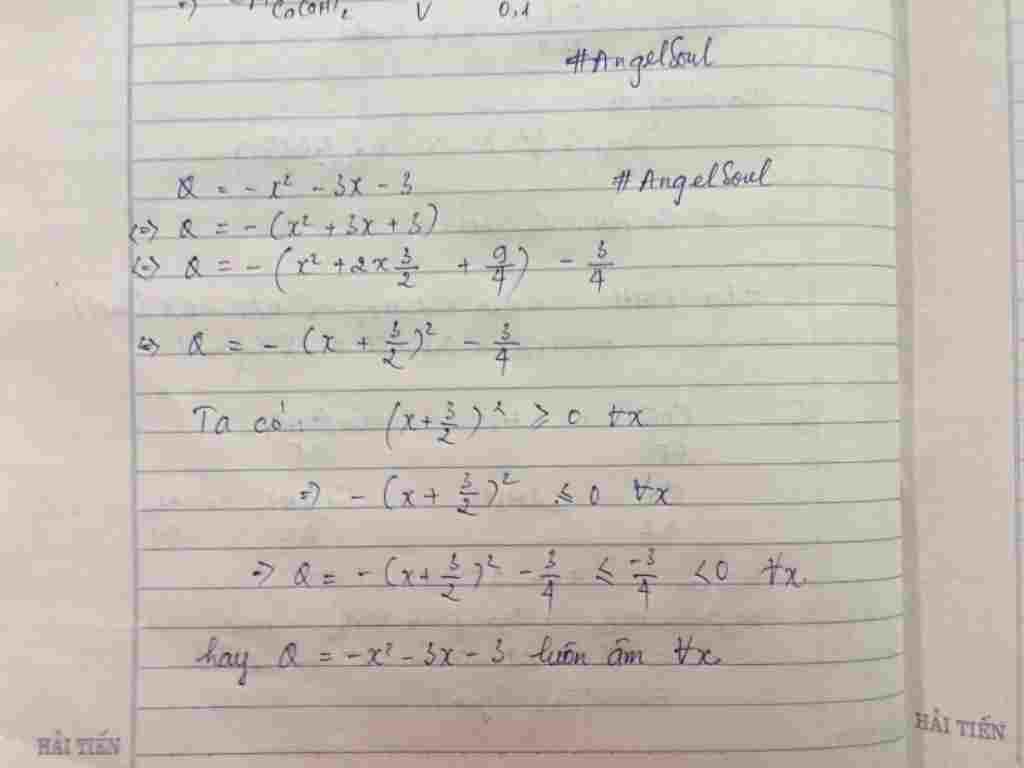 =) Ca(OH)₂ V 0,1
#AngelSoul
Q = - x² - 3x - 3 #AngelSoul
(=) Q = - (x² + 3x + 3)
(=) Q = - (x² + 2x 3/2 + 9/4) - 3/4
(=) Q = - (x + 3/2)² - 3/4
Ta có: (x + 3/2)² ≥ 0 ∀x
=) - (x + 3/2)² ≤ 0 ∀x
=> Q = - (x + 3/2)² - 3/4 ≤ -3/4 < 0 ∀x.
hay Q = -x² - 3x - 3 luôn âm ∀x.
HẢI TIẾN
HẢI TIẾN